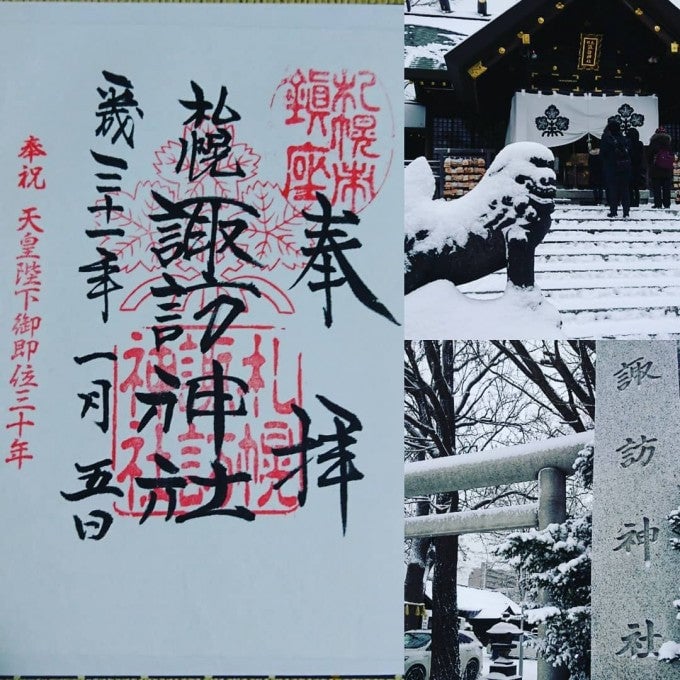 札幌市
鎮座
奉拝
札幌諏訪神社
札幌
諏訪
神社
平成三十一年一月五日
奉祝 天皇陛下御即位三十年
諏訪神社